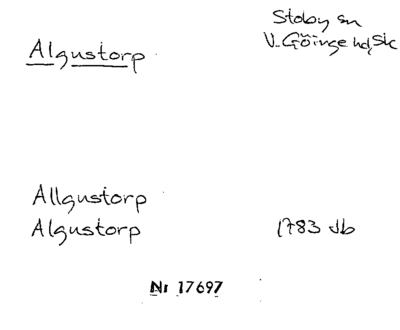 Stoby sn
Algustorp
V. Göinge hd, Sk
Allgustorp
Algustorp
1783 Jb
Nr 17697